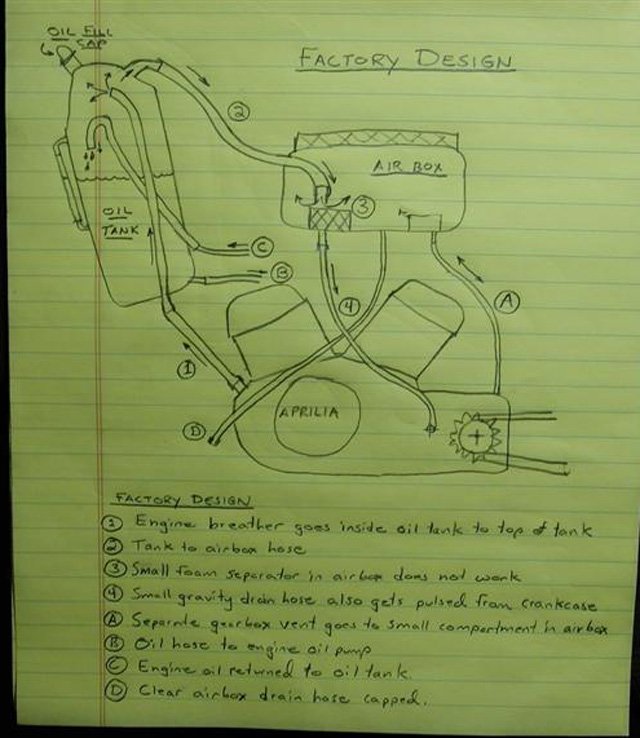 OIL FILL
CAP
FACTORY DESIGN
2
AIR BOX
3
OIL
TANK
C
B
4
A
1
APRILIA
D
FACTORY DESIGN
1 Engine breather goes inside oil tank to top of tank
2 Tank to airbox hose
3 Small foam separator in airbox does not work
4 Small gravity drain hose also gets pulsed from crankcase
A Separate gearbox vent goes to small compartment in airbox
B Oil hose to engine oil pump
C Engine oil returned to oil tank.
D Clear airbox drain hose capped.